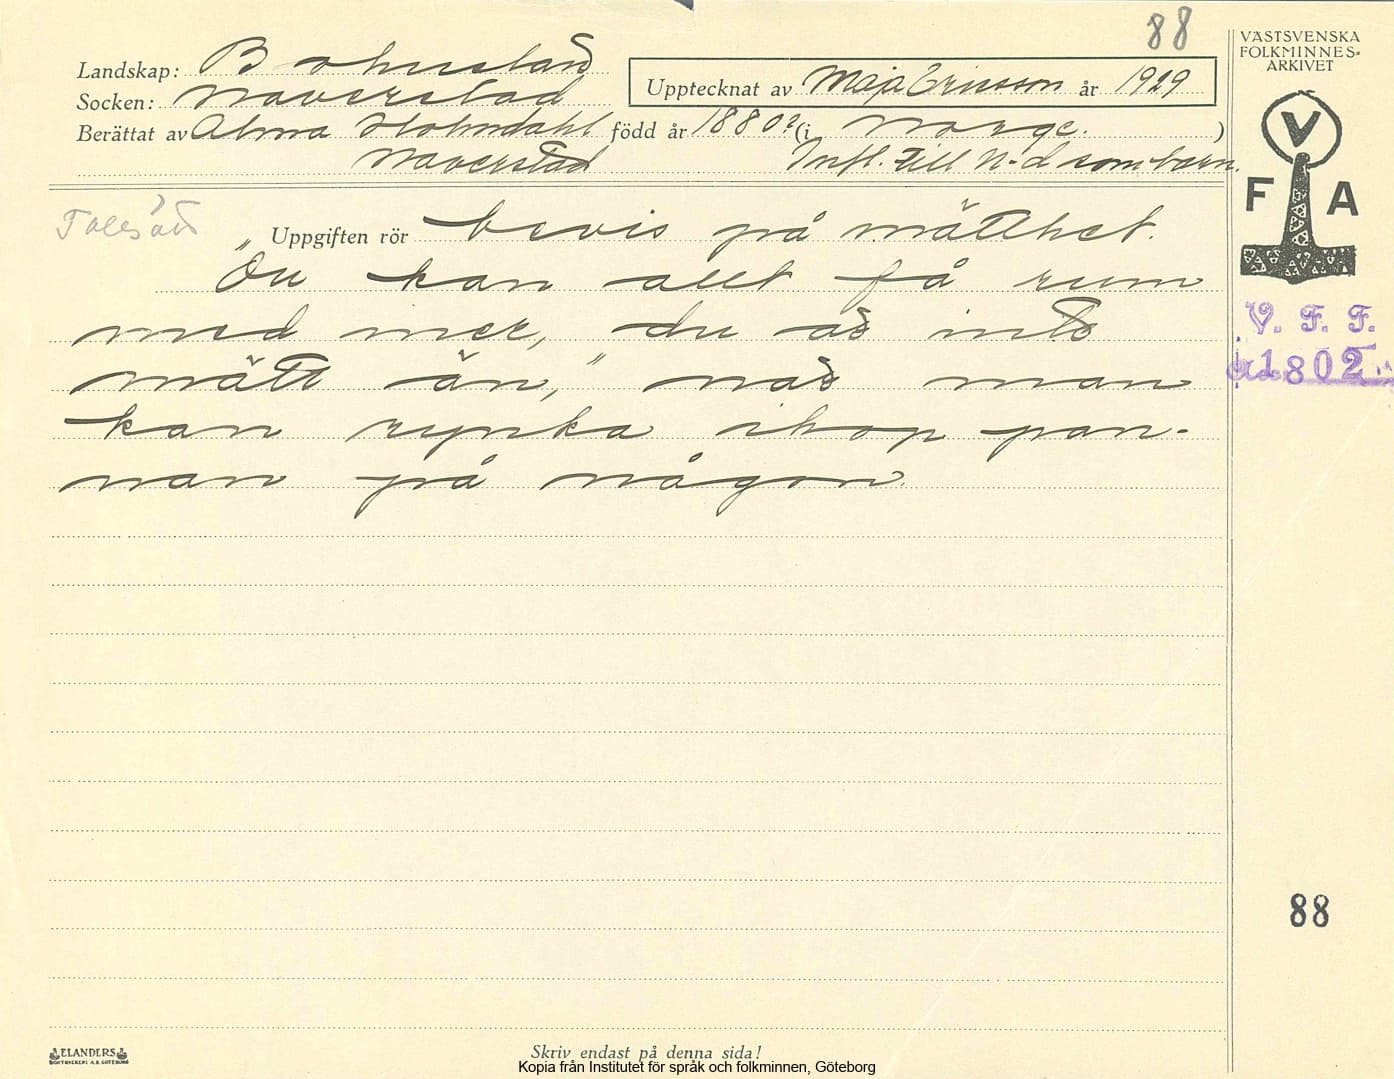 88
Landskap: Bohuslän
Socken: Naverstad
Upptecknat av Maja Ericsson år 1929
Berättat av Alma Holmdahl född år 1880? (i Norge.)
Naverstad Infl. till N-d som barn.
VÄSTSVENSKA
FOLKMINNES-
ARKIVET
V
F A
V. F. F.
1802
Talesätt
Uppgiften rör bevis på mätthet.
"Du kan allt få rum
med mer, du äs inte
mätt än," när man
kan rynka ihop pan-
nan på någon.
88
ELANDERS
BOKTRYCKERI A.B. GÖTEBORG
Skriv endast på denna sida!
Kopia från Institutet för språk och folkminnen, Göteborg